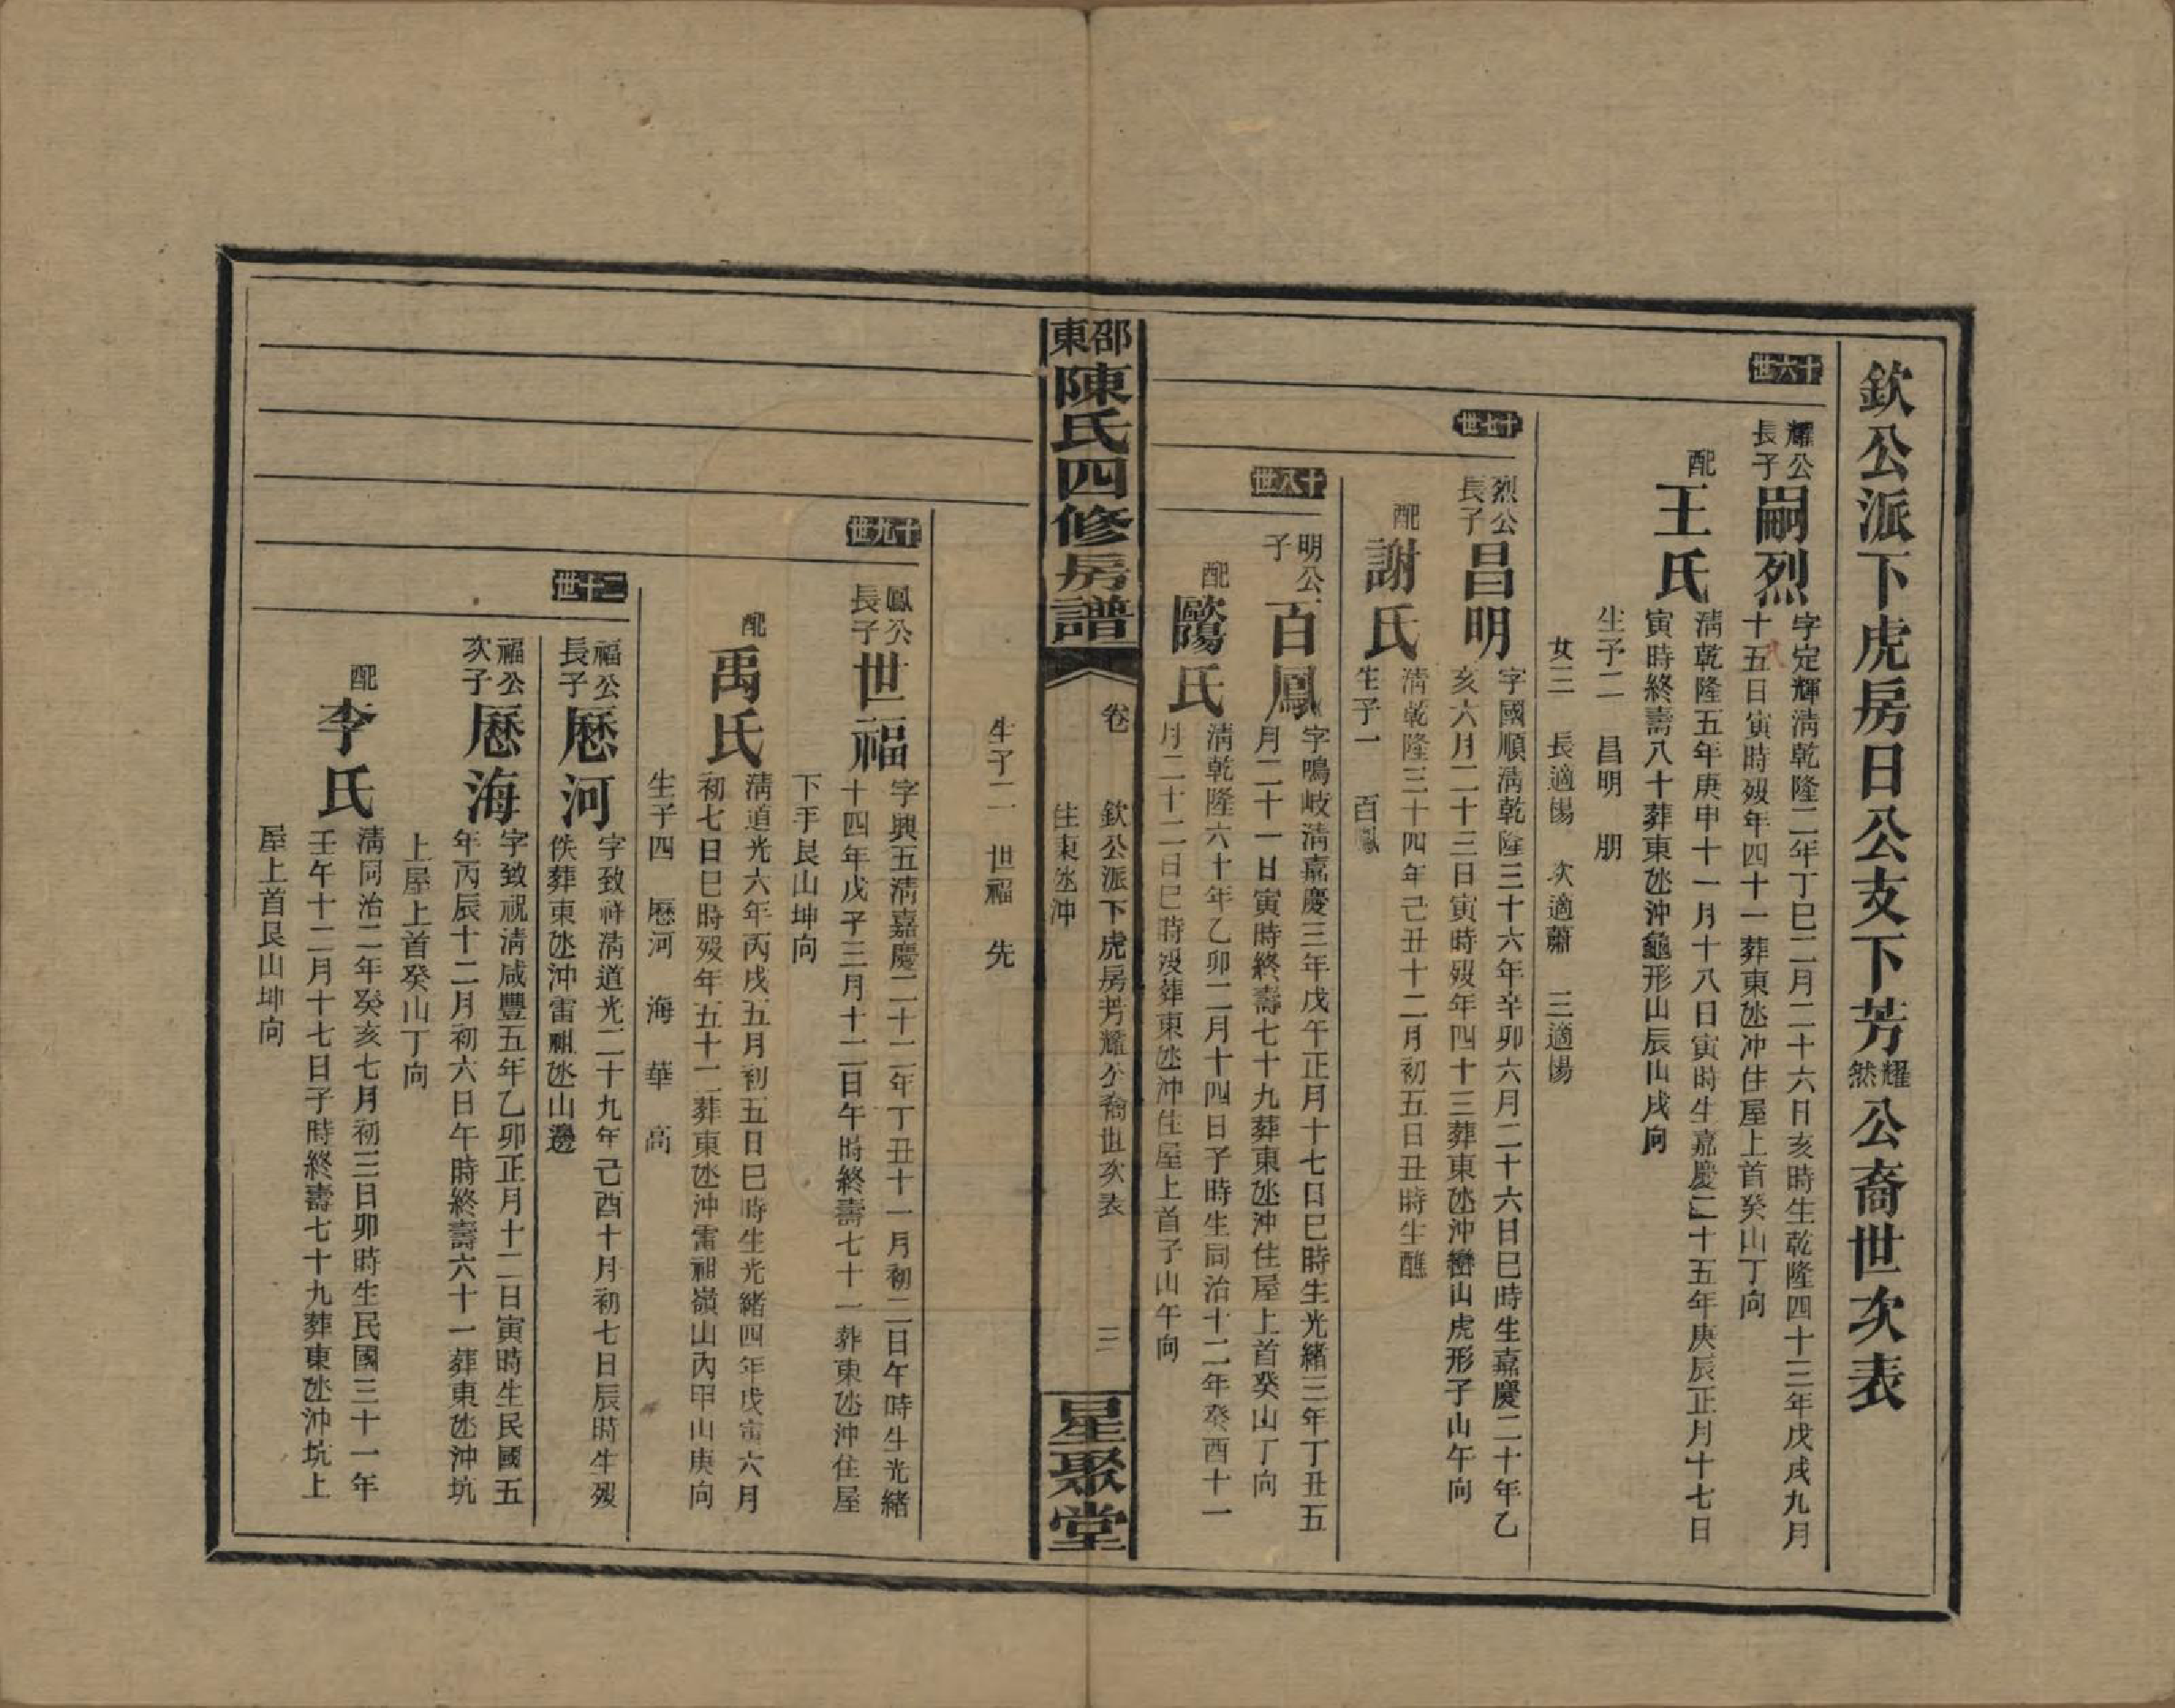 欽公派下虎房日公支下芳耀然公裔世次表
十六世
耀公長子
嗣烈
字定輝淸乾隆二年丁巳二月二十六日亥時生乾隆四十三年戊戌九月
十五日寅時歿年四十一葬東氹沖住屋上首癸山丁向
配
王氏
淸乾隆五年庚申十一月十八日寅時生嘉慶二十五年庚辰正月十七日
寅時終壽八十葬東氹沖龜形山辰山戌向
生子二 昌明 朋
女三 長適楊 次適蕭 三適楊
十七世
烈公長子
昌明
字國順淸乾隆三十六年辛卯六月二十六日巳時生嘉慶二十年乙
亥六月二十三日寅時歿年四十三葬東氹沖巒山虎形子山午向
配
謝氏
淸乾隆三十四年己丑十二月初五日丑時生醮
生子一 百鳳
十八世
明公子
百鳳
字鳴岐淸嘉慶三年戊午正月十七日巳時生光緒三年丁丑五
月二十一日寅時終壽七十九葬東氹沖住屋上首癸山丁向
配
歐陽氏
淸乾隆六十年乙卯二月十四日子時生同治十二年癸酉十一
月二十二日巳時沒葬東氹沖住屋上首子山午向
邵東陳氏四修房譜
卷
欽公派下虎房芳耀公裔世次表
住東氹沖
三
星聚堂
生子二 世福 先
十九世
鳳公長子
世福
字興五淸嘉慶二十二年丁丑十一月初二日午時生光緒
十四年戊子三月十二日午時終壽七十一葬東氹沖住屋
下手艮山坤向
配
禹氏
淸道光六年丙戌五月初五日巳時生光緒四年戊寅六月
初七日巳時歿年五十二葬東氹沖雷祖嶺山內甲山庚向
生子四 歷河 海 華 高
二十世
福公長子
歷河
字致祥淸道光二十九年己酉十月初七日辰時生歿
佚葬東氹沖雷祖氹山邊
福公次子
歷海
字致祝淸咸豐五年乙卯正月十二日寅時生民國五
年丙辰十二月初六日午時終壽六十一葬東氹沖坑
上屋上首癸山丁向
配
李氏
淸同治二年癸亥七月初三日卯時生民國三十一年
壬午十二月十七日子時終壽七十九葬東氹沖坑上
屋上首艮山坤向